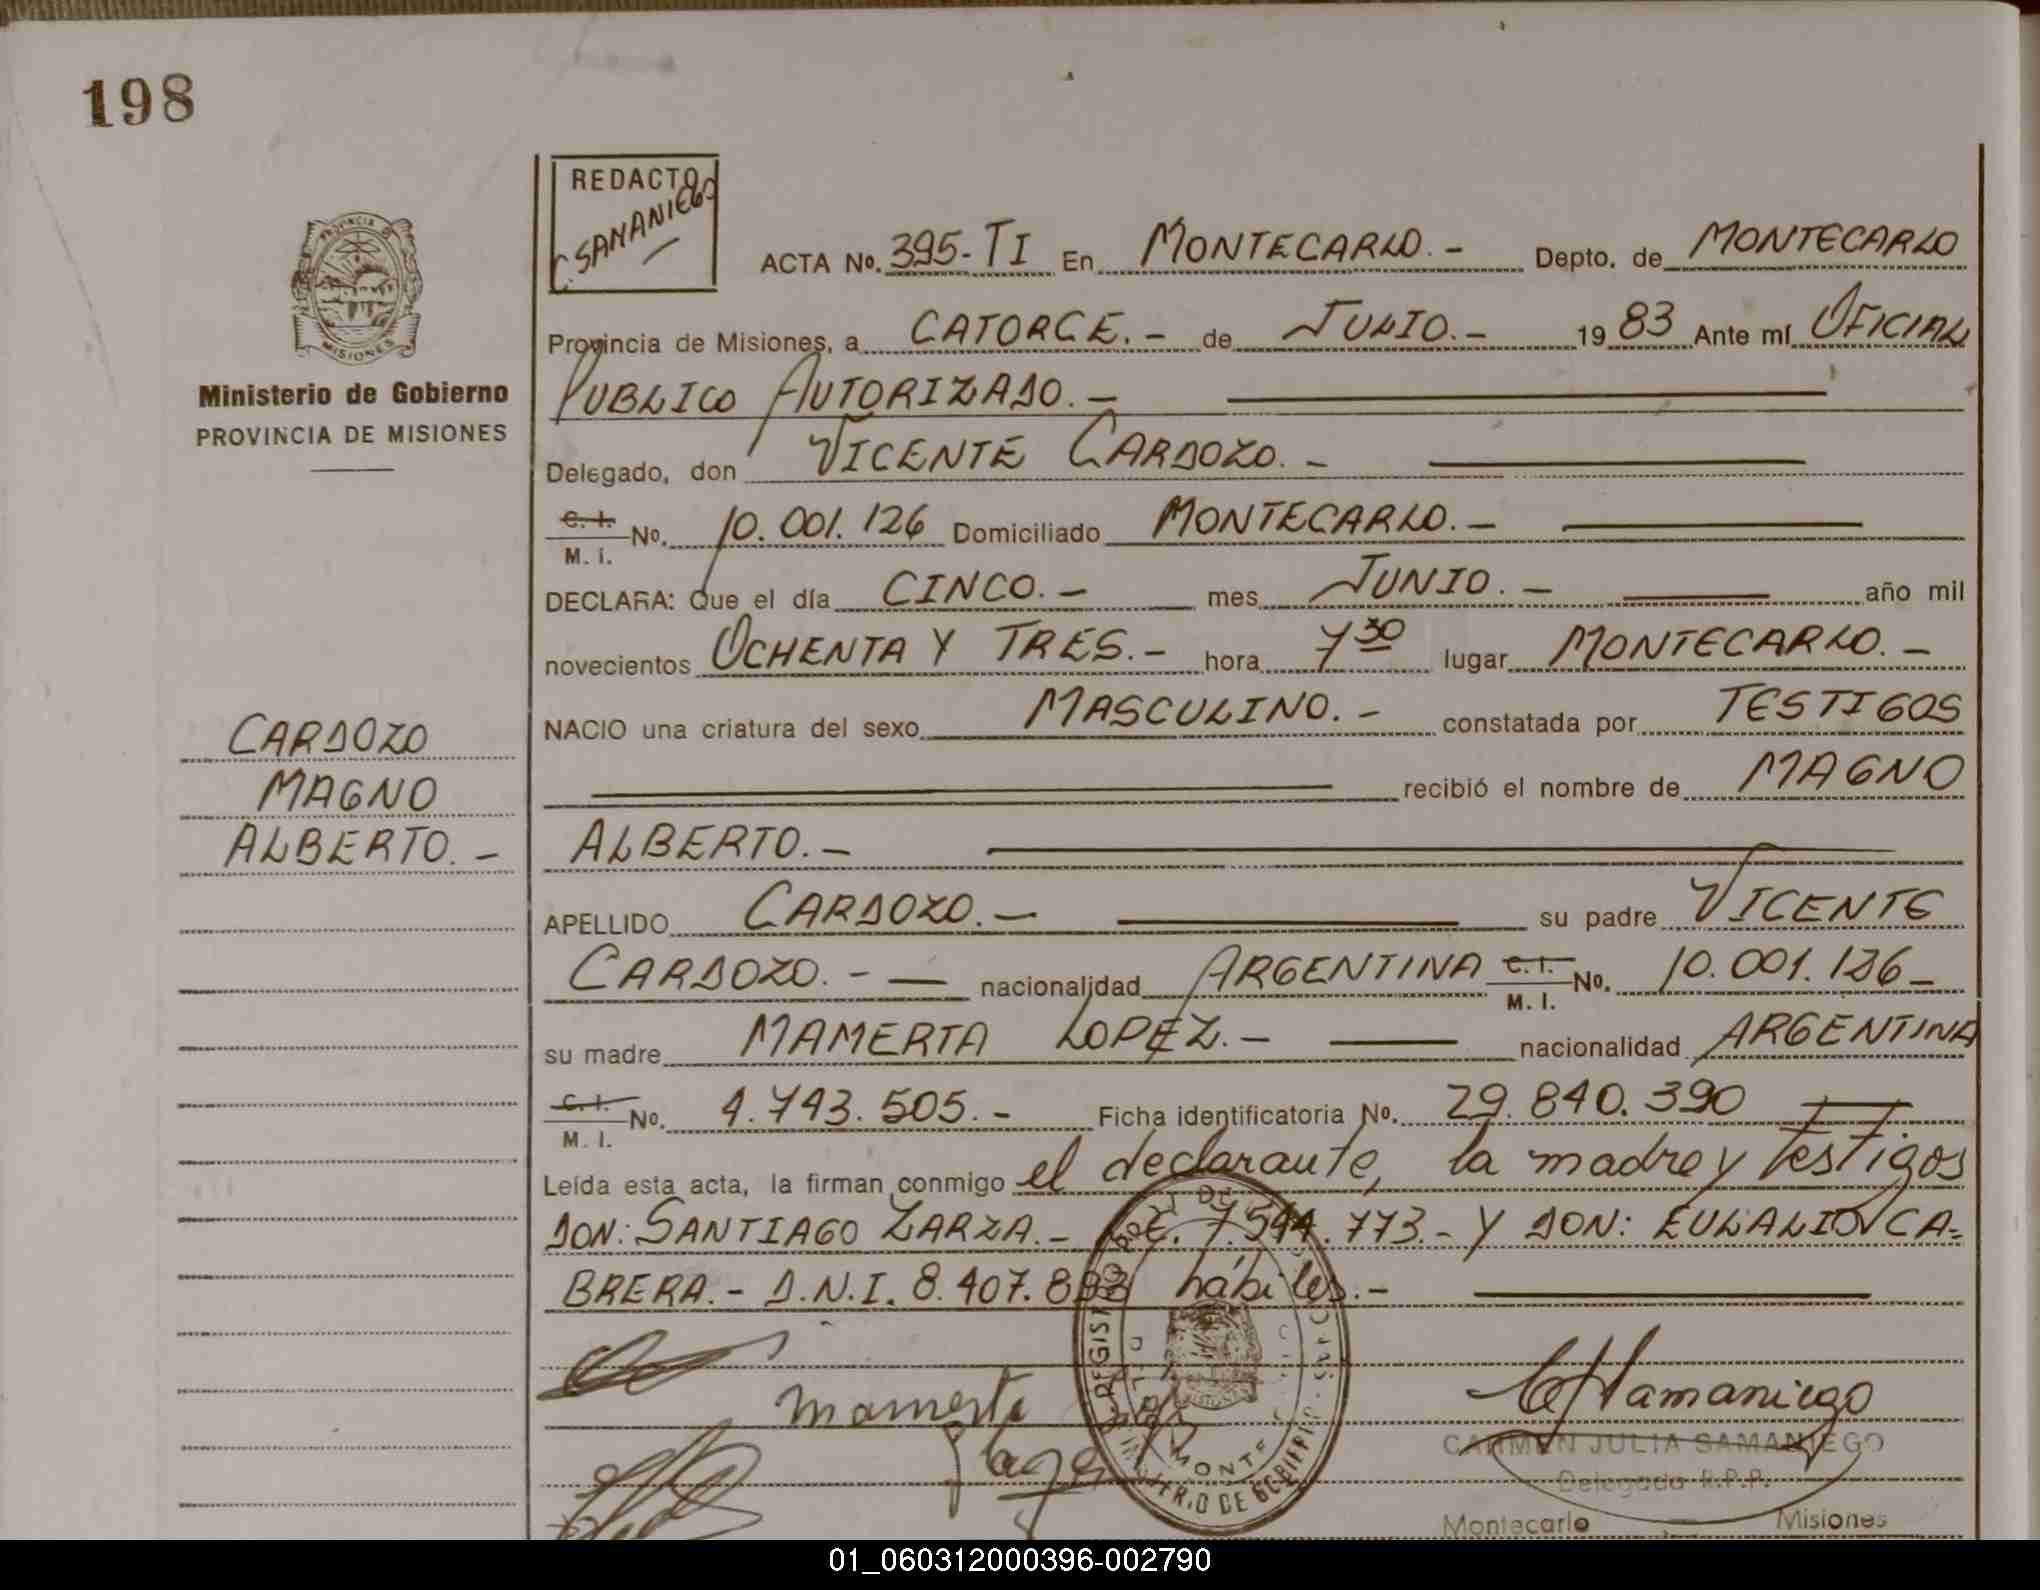 198
REDACTO
C SAMANIEGO
ACTA No. 395-TI En MONTECARLO.- Depto. de MONTECARLO
Provincia de Misiones, a CATORCE.- de JULIO.- 1983 Ante mí OFICIAL
PUBLICO AUTORIZADO.-
Delegado, don VICENTE CARDOZO.-
C. I. M. I. No. 10.001.126 Domiciliado MONTECARLO.-
DECLARA: Que el día CINCO.- mes JUNIO.- año mil
novecientos OCHENTA Y TRES.- hora 7 30 lugar MONTECARLO.-
NACIO una criatura del sexo MASCULINO.- constatada por TESTIGOS
recibió el nombre de MAGNO
ALBERTO.-
APELLIDO CARDOZO.- su padre VICENTE
CARDOZO.- nacionalidad ARGENTINA C. I. M. I. No. 10.001.126-
su madre MAMERTA LOPEZ.- nacionalidad ARGENTINA
C. I. M. I. No. 4.743.505.- Ficha identificatoria No. 29.840.390
Leída esta acta, la firman conmigo el declarante, la madre y testigos
DON: SANTIAGO ZARZA.- L.E. 7.544.773.- Y DON: EULALIO CA=
BRERA.- D.N.I. 8.407.893 hábiles.-
PROVINCIA DE
MISIONES
Ministerio de Gobierno
PROVINCIA DE MISIONES
CARDOZO
MAGNO
ALBERTO.-
Mamerta
CJSamaniego
CARMEN JULIA SAMANIEGO
Delegada R.P.P.
Montecarlo Misiones
MINISTERIO DE GOBIERNO
01_060312000396-002790